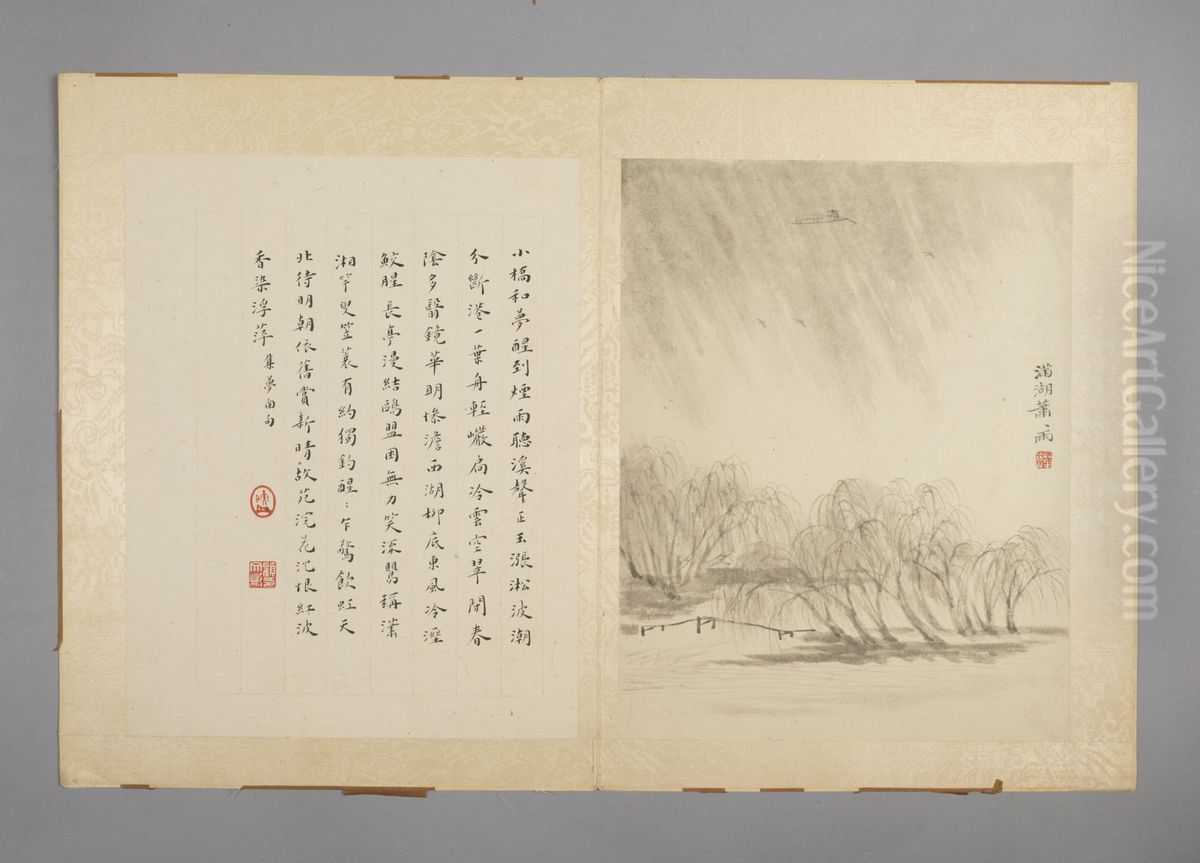 滿湖蕭〻雨
小橋和夢醒到煙雨聽溪聲正玉漲淞波潮
分斷港一葉舟輕巖扃冷雲空翠閉春
陰多翳鏡華明慘澹西湖柳底東風冷溼
鮫腥長亭漫結鷗盟困無力笑流鶯稱瀟
湘竿叟笠蓑有約獨釣醒〻乍驚飲虹天
北待明朝依舊賞新晴故苑浣花沈恨紅波
香染浮萍 集夢窗句
NiceArtGallery.com